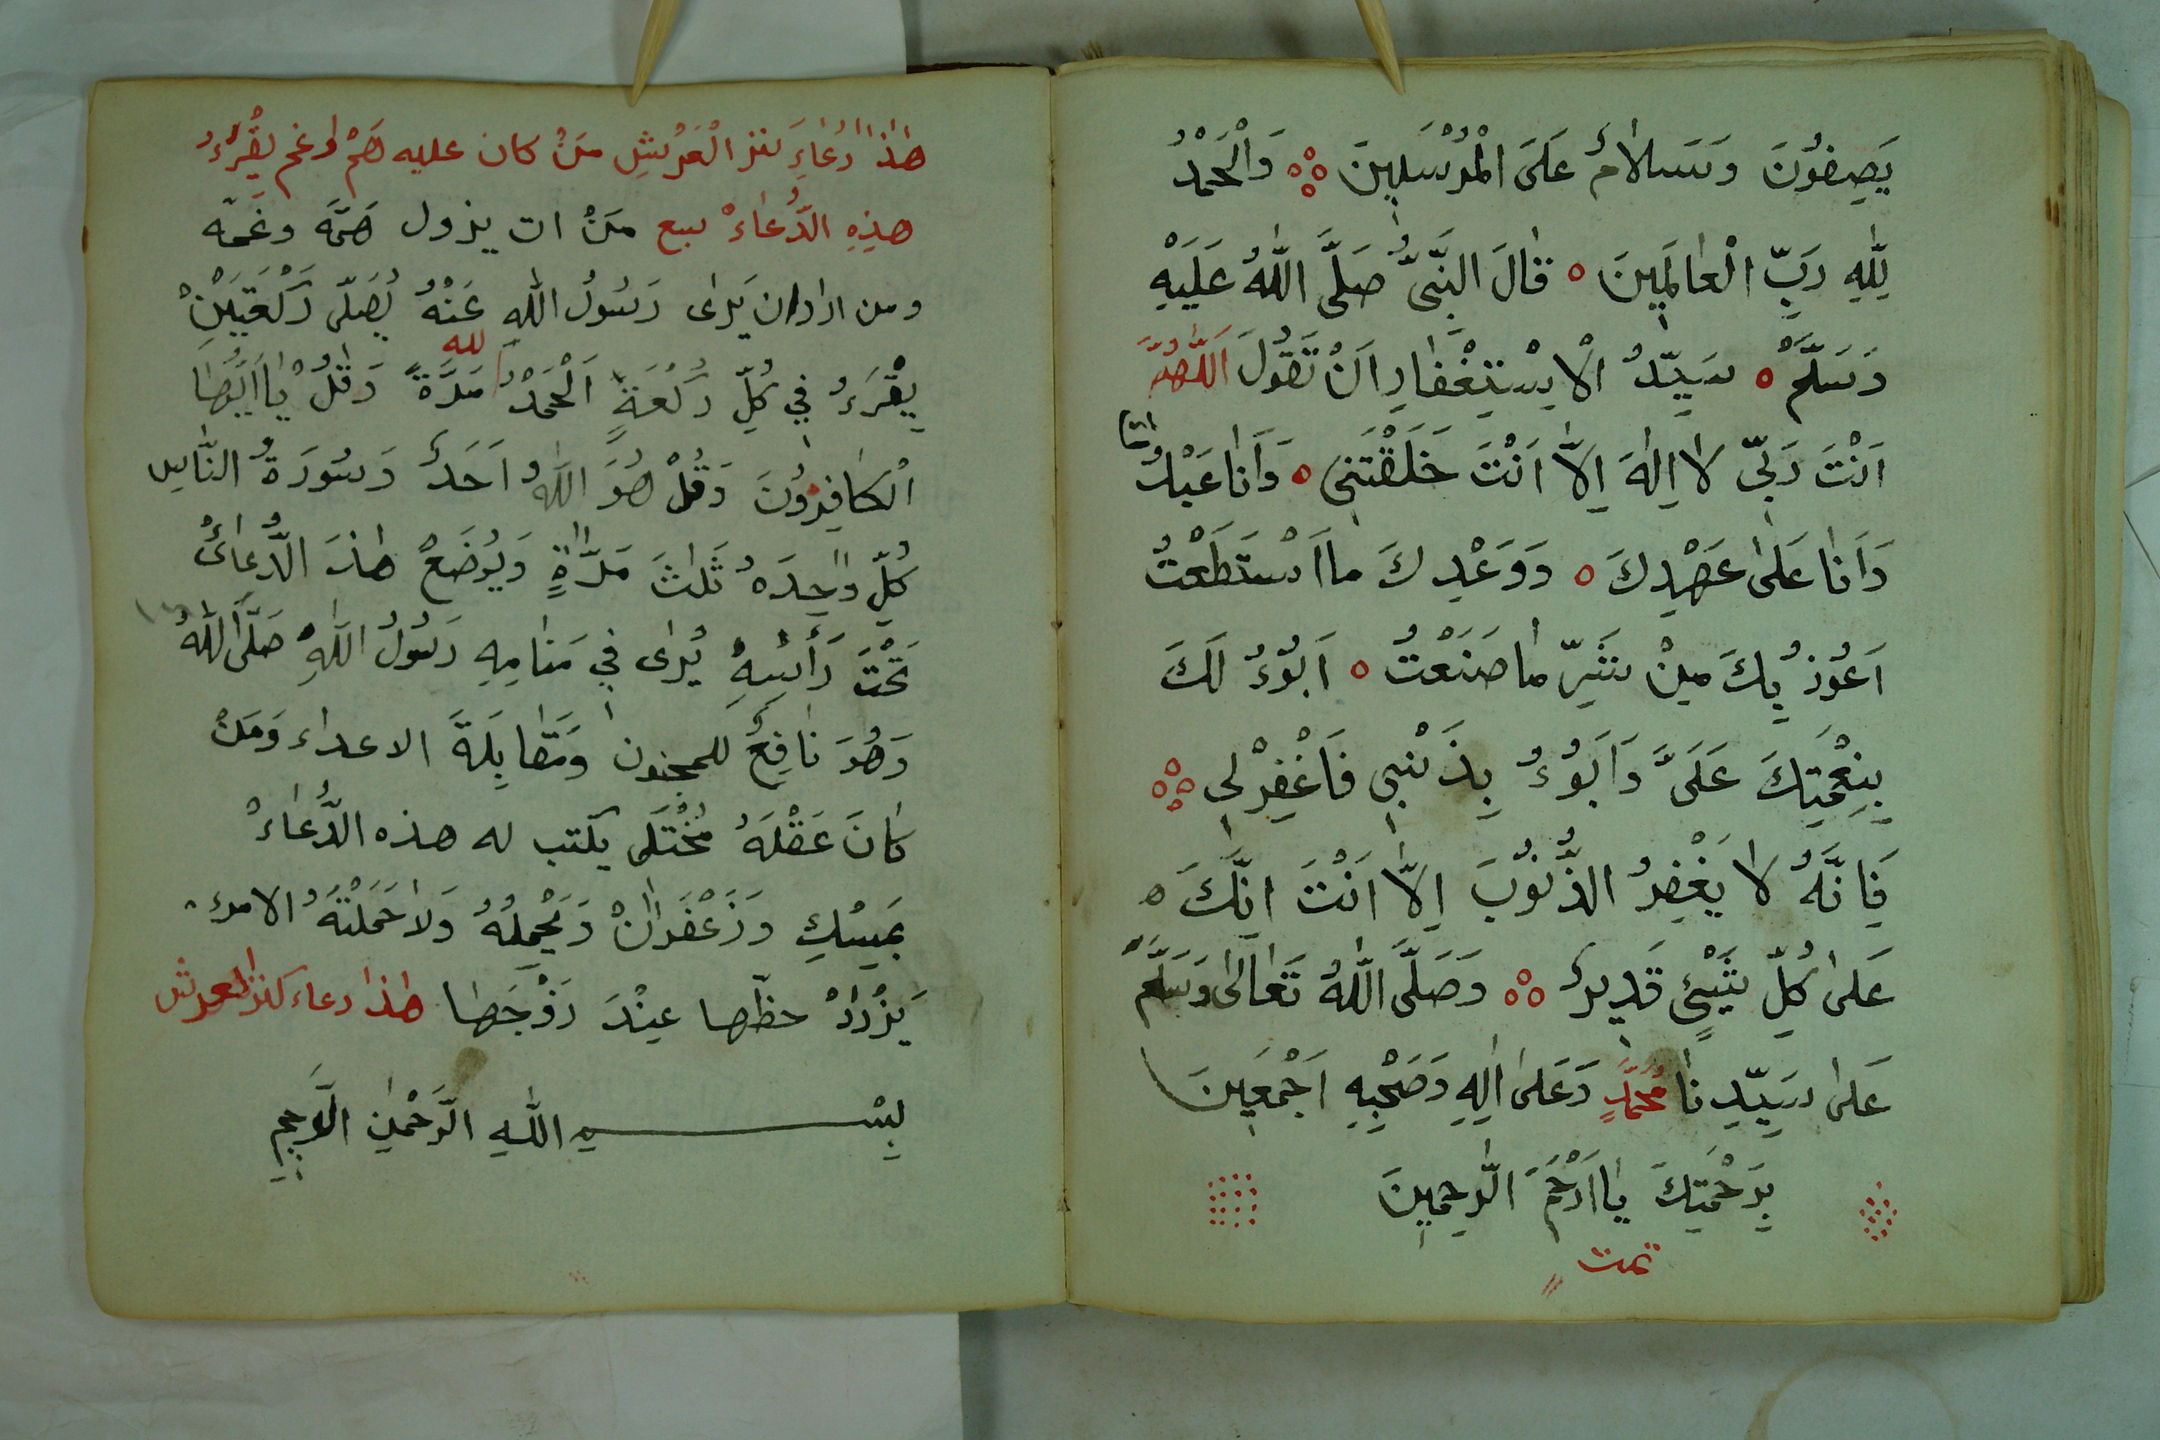 يَصِفُوْنَ وَسَلَامٌ عَلَى الْمُرْسَلِينَ وَالْحَمْدُ
لِلّٰهِ رَبِّ الْعَالَمِينَ قَالَ النَّبِىُّ صَلَّى اللّٰهُ عَلَيْهِ
وَسَلَّمْ سَيِّدُ الْاِسْتِغْفَارِ اَنْ تَقُولَ اَللّٰهُمَّ
اَنْتَ رَبِّى لَا اِلٰهَ اِلَّا اَنْتَ خَلَقْتَنِى وَاَنَا عَبْدُكَ
وَاَنَا عَلٰى عَهْدِكَ وَوَعْدِكَ مَا اَسْتَطَعْتُ
اَعُوْذُ بِكَ مِنْ شَرِّ مَا صَنَعْتُ اَبُوْءُ لَكَ
بِنِعْمَتِكَ عَلَىَّ وَاَبُوْءُ بِذَنْبِى فَاغْفِرْلِى
فَاِنَّهُ لَا يَغْفِرُ الذُّنُوْبَ اِلَّا اَنْتَ اِنَّكَ
عَلٰى كُلِّ شَيْئٍ قَدِيرٌ وَصَلَّى اللّٰهُ تَعَالٰى وَسَلَّمْ
عَلٰى سَيِّدِنَا مُحَمَّدٍ وَعَلٰى اٰلِهِ وَصَحْبِهِ اَجْمَعِينَ
بِرَحْمَتِكَ يَا اَرْحَمَ الرَّحِمِينَ
تمت
هٰذَا دُعَاءِ كنز الْعَرْشِ مَنْ كان عليه هَمْ او غم يَقْرَءُ
هذِهِ الدُّعَاءْ مَنْ ان يزول هَمَّه وغَمّه
ومن اراد ان يَرٰى رَسُولُ اللّٰهِ عَنْهُ يُصَلّى رَكْعَتَيْنْ
يَقْرَءُ فِي كُلِّ رَكْعَةٍ اَلْحَمْدُ لله مَرَّةً وَقُلْ يَا اَيُّهَا
الْكَافِرُونَ وَقُلْ هُوَ اللّٰهُ اَحَدٌ وَسُورَةُ النَّاسِ
كُلِّ وَاحِدَهُ ثَلٰثَ مَرَّاةٍ وَيُوضَعُ هٰذَ الدُّعَائُ
تَحْتَ رَأْسِهِ يُرٰى فِي مَنَامِهِ رَسُولُ اللّٰهِ صَلَّى اللّٰهُ
وَهُوَ نَافِعٌ للمجنون وَمَقَابِلَةَ الاعداء وَمَنْ
كَانَ عَقْلَهُ مُخْتَلَى يكتب له هذه الدُّعَاءْ
بَمِسْكِ وَزَعْفَرَانْ وَيَحْمِلُهُ وَلَا حَمَلَتْهُ الامرء
يَزْدَادْ حظّها عِنْدَ زَوْجَهَا هٰذَا دعاء كنز العرش
بِسْمِ اللّٰهِ الرَّحْمٰنِ الرَّحِيمِ